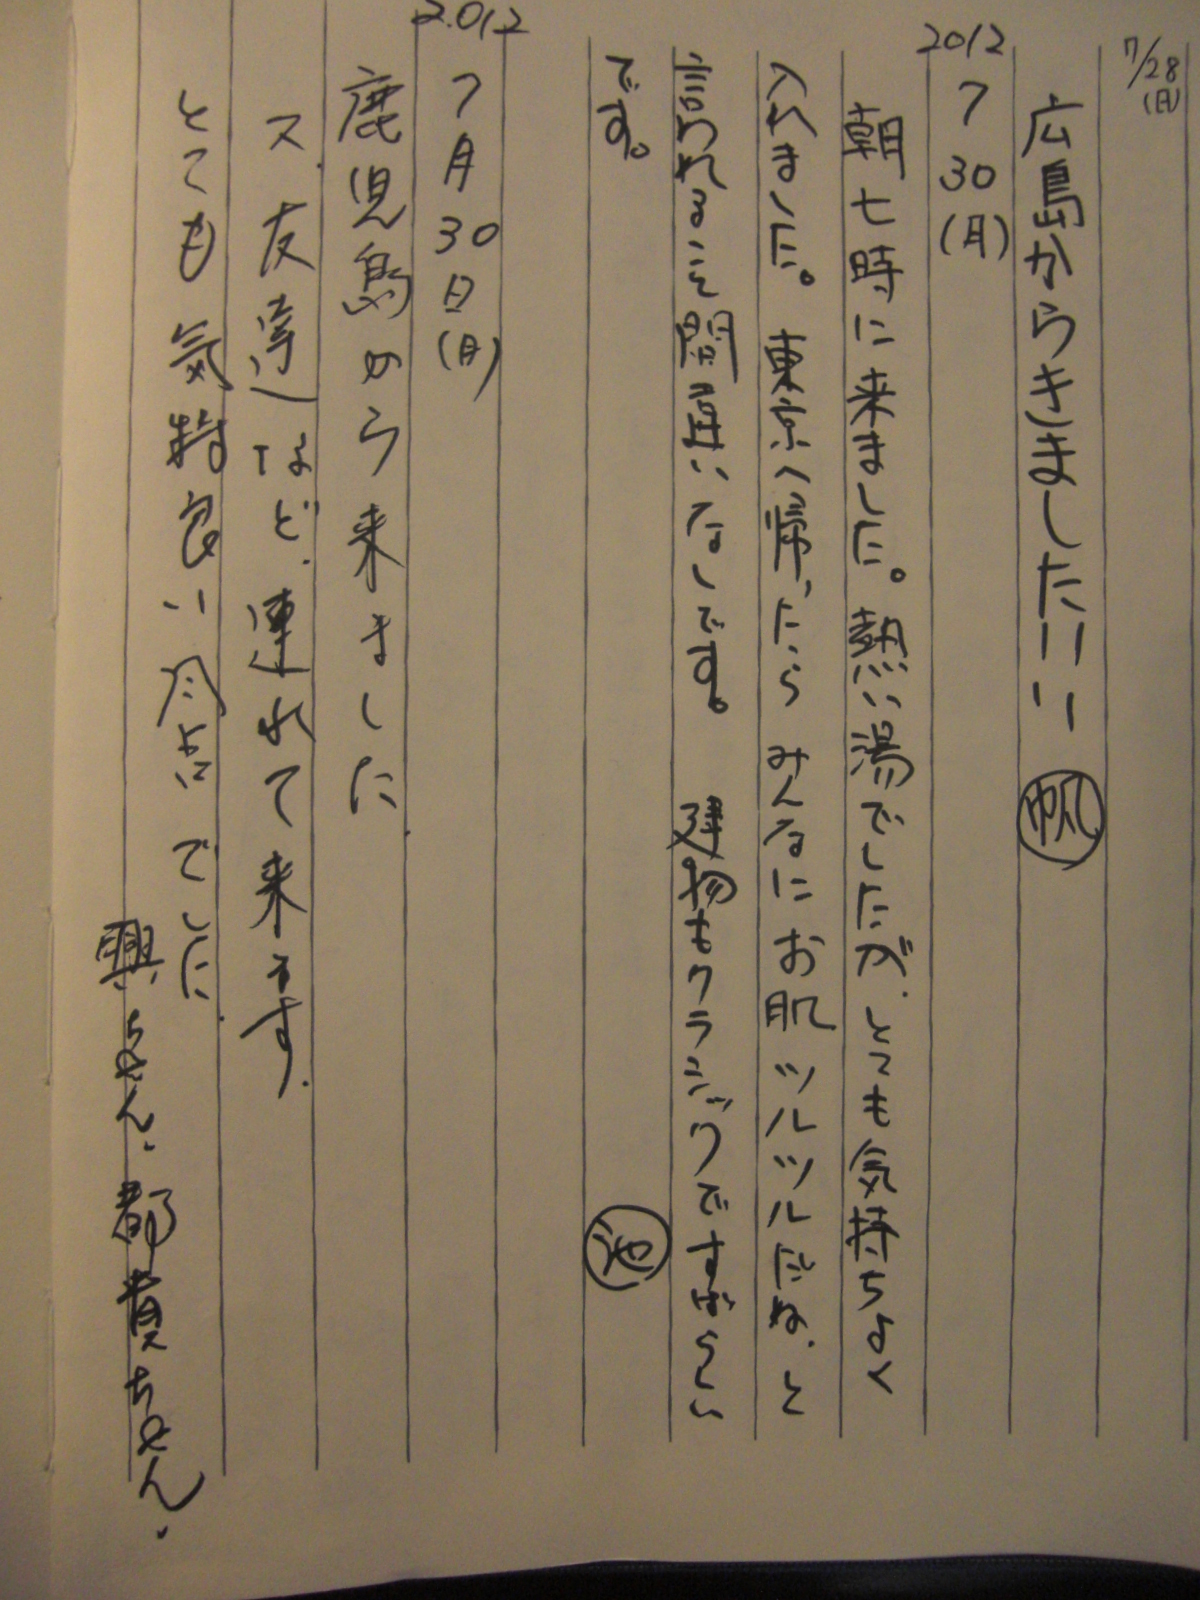 7/28
(日)
広島からきましたハハ 帆
2012
7 30 (月)
朝七時に来ました。熱い湯でしたが、とても気持ちよく
入れました。東京へ帰ったら みんなにお肌ツルツルだね、と
言われること間違いなしです。 建物もクラシックですばらしい
です。 池
2012
7月30日(月)
鹿児島から来ました
又、友達など、連れて来ます、
とても気持良い でした
興ちゃん、都貴ちゃん、